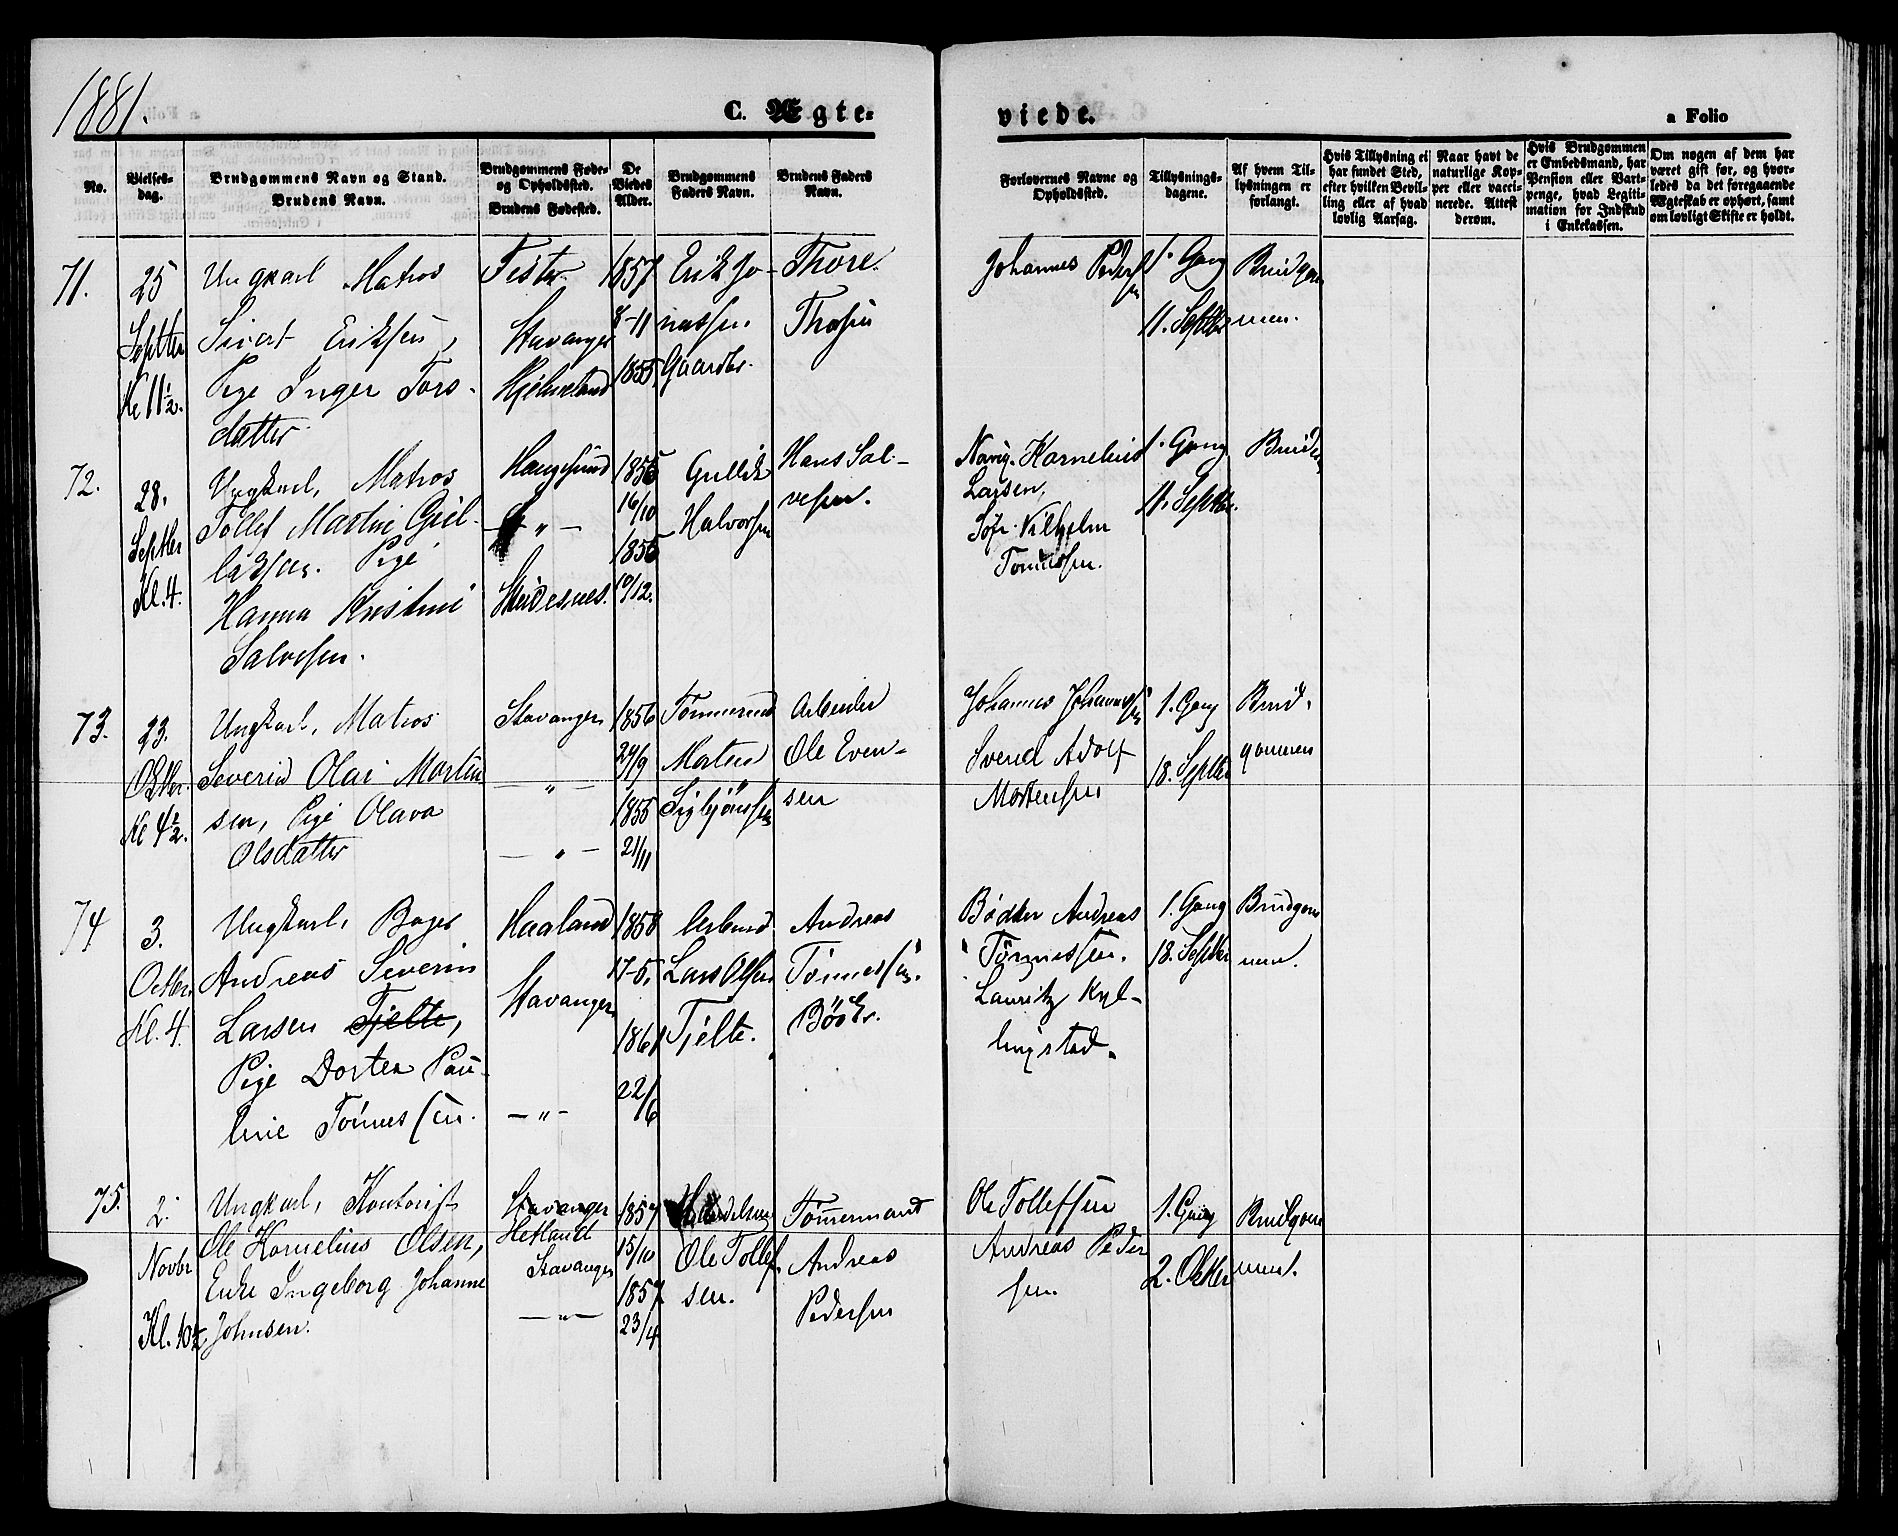 1881.
C. Ægte-
viede.
a Folio
No.
Vielses-
dag.
Brudgommens Navn og Stand.
Brudens Navn.
Brudgommens Føde-
og Opholdssted.
Brudens Fødested.
De
Viedes
Alder.
Brudgommens
Faders Navn.
Brudens Faders
Navn.
Forlovernes Navne og
Opholdssted.
Tillysnings-
dagene.
Af hvem Til-
lysningen er
forlangt.
Hvis Tillysning ei
har fundet Sted,
efter hvilken Bevil-
ling eller af hvad
lovlig Aarsag.
Naar havt de
naturlige Kop-
per eller vacci-
nerede. Attest
derom.
Hvis Brudgommen
er Embedsmand, har
Pension eller Vart-
penge, hvad Legiti-
mation for Indskud
i Enkekassen.
Om nogen af dem har
været gift før, og hvor-
ledes da det foregaaende
Ægteskab er ophørt, samt
om lovligt Skifte er holdt.
71.
25
Septbr
Kl 11½.
Ungkarl Matros
Sivert Eriksen,
Pige Inger Tors-
datter
Stavanger
Hjelmeland
1857
8-11
1855
Erik Jo-
nassen
Gaardbr.
Thore
Johannes Peders
en
1. Gang
11. Septbr
Brudgom
men.
72.
28.
Septbr
Kl. 4.
Ungkarl, Matros
Tollef Martin Gul-
laksen. Pige
Hanna Kristine
Salvesen.
Haugesund
— " —
Skudesnes.
1855
16/10
1855
10/12.
Gullik
Halvorsen
Hans Sal-
vesen.
Navig. Kornelius
Larsen,
Vilhelm
Tønnessen.
1. Gang
11. Septbr.
73.
23.
Octbr.
Kl 4½.
Ungkarl, Matros
Severin Olai Morten
sen, Pige Olava
Olsdatter
Stavanger
— " —
— " —
1856
24/9
1855
21/11
Tømmermd
Morten
Sigbjørnsen
Arbeider
Ole Even-
sen
Johannes Johannes
en
Svend Adolf
Mortensen
1. Gang
18. Septbr
Brud-
gommen
74
3.
Octbr.
Kl. 4.
Ungkarl, Bager
Andreas Severin
Larsen Tjelte,
Pige Dortea Pau-
line Tønnessen.
Haaland
Stavanger
— " —
1858
17-5.
1861
22/6
Arbeid.
Lars Olsen
Tjelte.
Andreas
Tønnessen.
Bødker Andreas
Tønnessen.
Lauritz Kyl-
lingstad.
1. Gang
18. Septbr
Brudgom
men.
75.
2.
Novbr
Kl. 10½
Ungkarl, Kontorist
Ole Kornelius Olsen,
Enke Ingeborg Johanne
Johnsen.
Stavanger
Hetland
Stavanger
— " —
1857
15/10
1857
23/4
Ole Tollef-
sen.
Tømmermand
Andreas
Pedersen
Ole Tollefsen
Andreas Peder
sen.
1. Gang
2. Octbr
Brudgom
men.